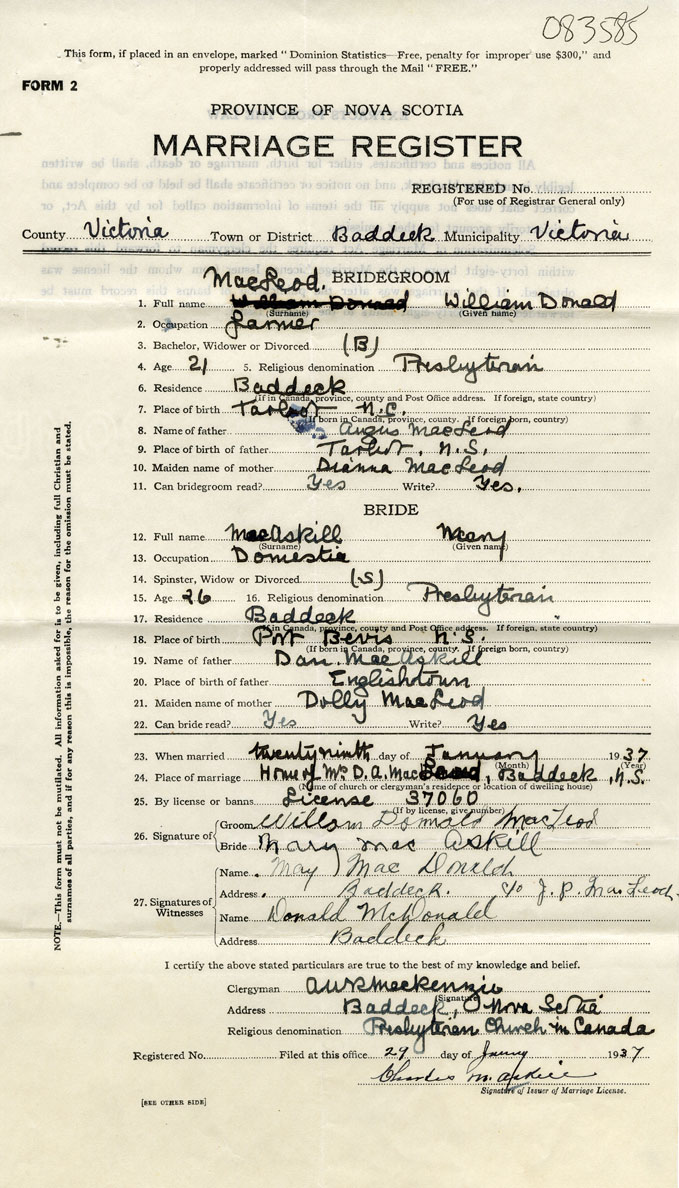 083585
This form, if placed in an envelope, marked "Dominion Statistics—Free, penalty for improper use $300," and
properly addressed will pass through the Mail "FREE."
FORM 2
PROVINCE OF NOVA SCOTIA
MARRIAGE REGISTER
REGISTERED No.
(For use of Registrar General only)
County Victoria Town or District Baddeck Municipality Victoria
MacLeod. BRIDEGROOM
1. Full name William Donald William Donald
(Surname) (Given name)
2. Occupation Farmer
3. Bachelor, Widower or Divorced (B)
4. Age 21 5. Religious denomination Presbyterian
6. Residence Baddeck
(If in Canada, province, county and Post Office address. If foreign, state country)
7. Place of birth Tarbot N.C.
(If born in Canada, province, county. If foreign born, country)
8. Name of father Angus MacLeod
9. Place of birth of father Tarbot, N.S.
10. Maiden name of mother Dianna MacLeod
11. Can bridegroom read? Yes Write? Yes.
BRIDE
12. Full name MacAskill Mary
(Surname) (Given name)
13. Occupation Domestic
14. Spinster, Widow or Divorced (S)
15. Age 26 16. Religious denomination Presbyterian
17. Residence Baddeck
(If in Canada, province, county and Post Office address. If foreign, state country)
18. Place of birth Port Bevis N.S.
(If born in Canada, province, county. If foreign born, country)
19. Name of father Dan. MacAskill
20. Place of birth of father Englishtown
21. Maiden name of mother Dolly MacLeod
22. Can bride read? Yes Write? Yes
23. When married twenty ninth day of January 1937
(Month) (Year)
24. Place of marriage Home of Mrs D. A. MacLeod, Baddeck, N.S.
(Name of church or clergyman's residence or location of dwelling house)
25. By license or banns. License 37060
(If by license, give number)
26. Signature of Groom Willam Donald MacLeod
Bride Mary Mac Askill
27. Signatures of Witnesses
Name May Mac Donald
Address Baddeck. c/o J. P. MacLeod.
Name Donald McDonald
Address Baddeck
I certify the above stated particulars are true to the best of my knowledge and belief.
Clergyman A W R Mackenzie
(Signature)
Address Baddeck, Nova Scotia
Religious denomination Presbyterian Church in Canada
Registered No. Filed at this office 29 day of Jany 1937
Charles McAskill
Signature of Issuer of Marriage License.
[SEE OTHER SIDE]
NOTE.—This form must not be mutilated. All information asked for is to be given, including full Christian and
surnames of all parties, and if for any reason this is impossible, the reason for the omission must be stated.